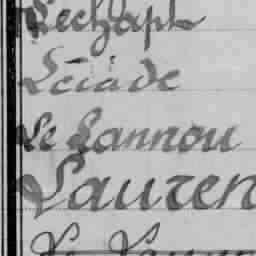 Lechapt
Léiade
Le Lannou
Lauren
Le